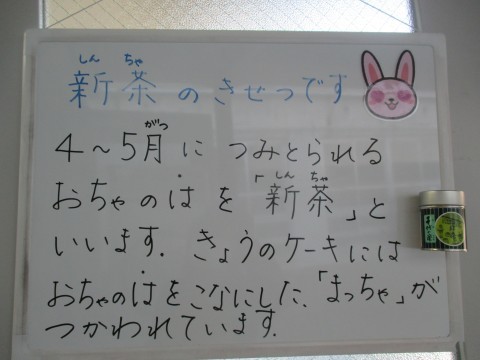 しん ちゃ
新茶のきせつです
がつ
4～5月に つみとられる
しん ちゃ
おちゃのはを「新茶」と
いいます. きょうのケーキには
おちゃのはをこなにした、「まっちゃ」が
つかわれています.